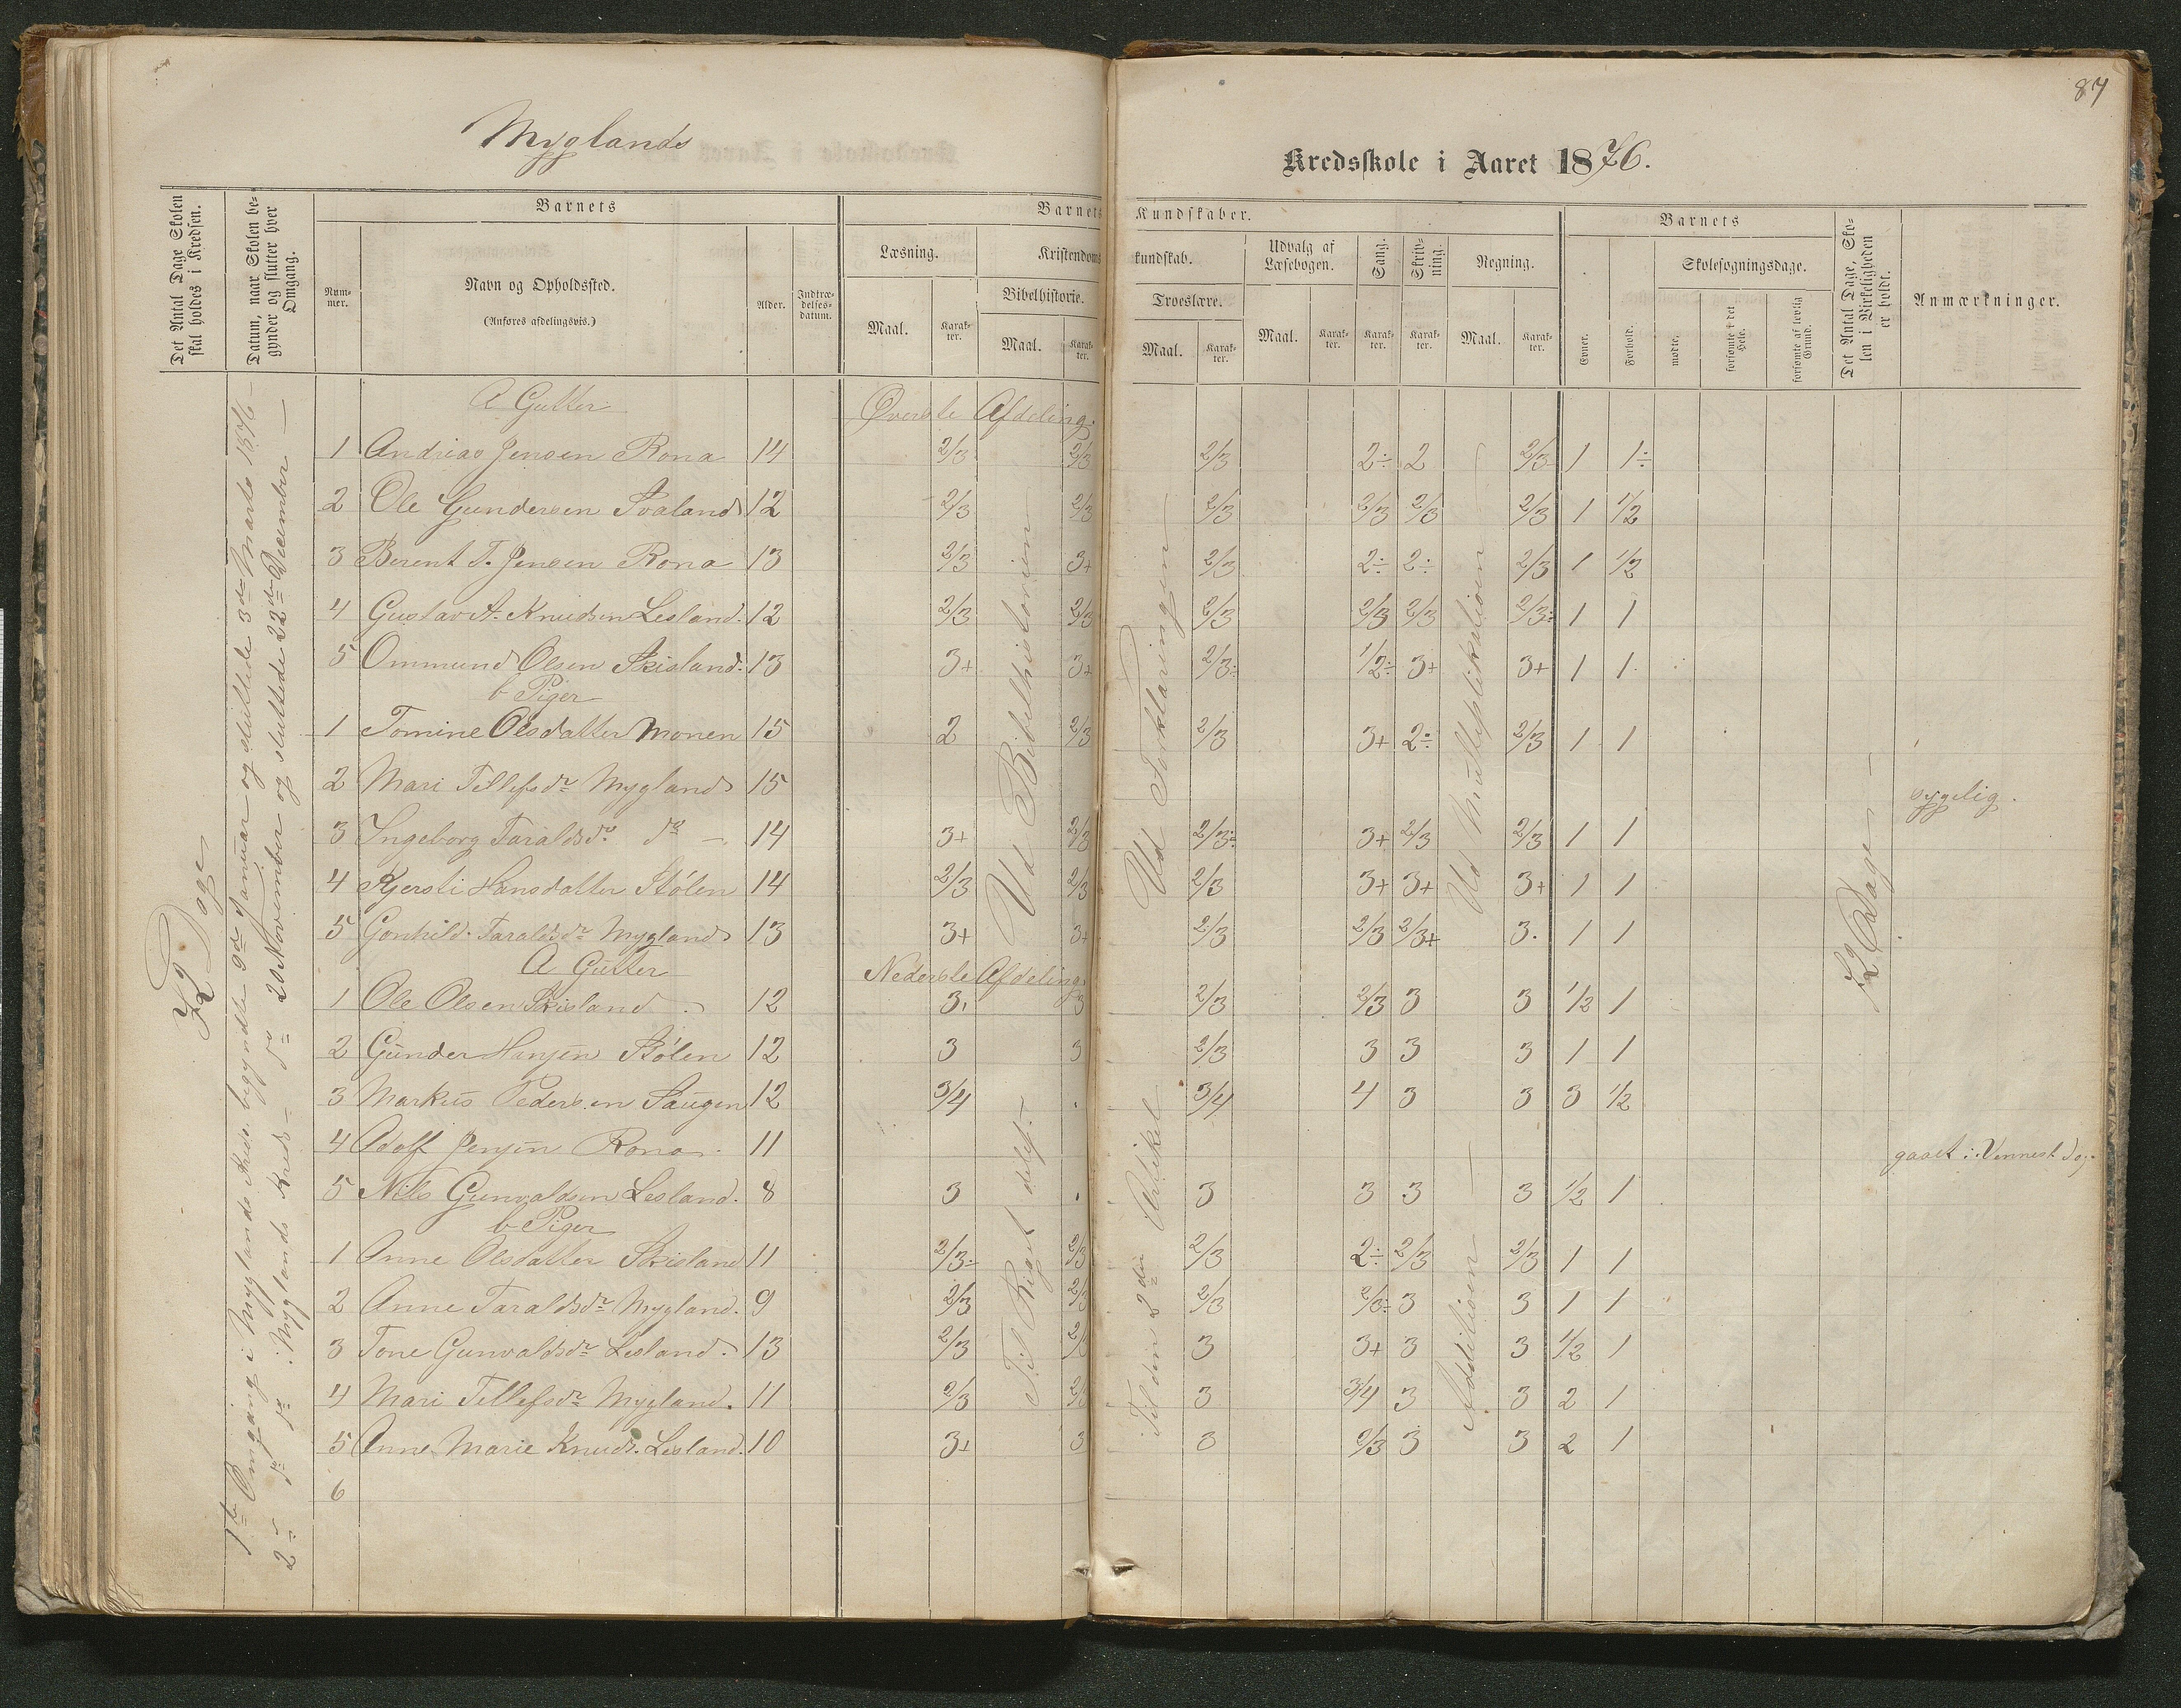 87
Myglands
Kredsskole i Aaret 1876.
Det Antal Dage Skolen skal holdes i Kredsen.
Datum, naar Skolen begynder og slutter hver Omgang.
Barnets
Nummer.
Navn og Opholdssted.
(Anføres afdelingsvis.)
Alder.
Indtrædelsesdatum.
Barnets Kundskaber.
Læsning.
Maal.
Karakter.
Kristendomskundskab.
Bibelhistorie.
Maal.
Karakter.
Troeslære.
Maal.
Karakter.
Udvalg af Læsebogen.
Maal.
Karakter.
Sang.
Karakter.
Skrivning.
Karakter.
Regning.
Maal.
Karakter.
Barnets
Evner.
Forhold.
Skolesøgningsdage.
mødte.
forsømte i det Hele.
forsømte af lovlig Grund.
Det Antal Dage, Skolen i Virkeligheden er holdt.
Anmærkninger.
72 Dage
1ste Omgang i Myglands Kreds begyndte 9de Januar og sluttede 3de Marts 1876 –
2 – do do i Myglands Kreds – do 20 November og sluttede 22de December –
A Gutter
Øverste Afdeling.
1 Andreas Jensen Rona 14 2/3 2/3 2/3 2÷ 2 2/3 1 1÷
2 Ole Gundersen Svaland 12 2/3 2/3 2/3 2/3 2/3 2/3 1 1/2
3 Berent T. Jensen Rona 13 2/3 3+ 2/3 2÷ 2÷ 2/3 1 1/2
4 Gustav A. Knudsen Lesland. 12 2/3 2/3 2/3 2/3 2/3 2/3÷ 1 1
5 Ommund Olsen Skisland. 13 3+ 3+ 2/3÷ 1/2÷ 3+ 3+ 1 1
b Piger
1 Tomine Olsdatter Monen 15 2 2/3 2/3 3+ 2÷ 2/3 1 1
2 Mari Tellefsdr Mygland 15 sygelig.
3 Ingeborg Taraldsdr do – 14 3+ 2/3 2/3÷ 3+ 2/3 2/3 1 1
4 Kjersti Hansdatter Stølen 14 2/3 2/3 2/3 3+ 3+ 3+ 1 1
5 Gonhild Taraldsdr Mygland 13 3+ 3+ 2/3 2/3 2/3+ 3. 1 1
Ud Bibelhistorien
Ud Forklaringen
Ud Multiplikationen
72 Dage
A Gutter
Nederste Afdeling.
1 Ole Olsen Skisland 12 3 3 2/3 2/3 3 3 1/2 1
2 Gunder Hansen Stølen 12 3 3 2/3 3 3 3 1 1
3 Markus Pedersen Haugen 12 3/4 3/4 4 3 3 3 1/2
4 Adolf Jensen Rona 11 gaaet i Vennesl.
5 Nils Gunvaldsen Lesland. 8 3 3 3 3 3 1/2 1
b Piger
1 Anne Olsdatter Skisland 11 2/3÷ 2/3 2/3 2÷ 2/3 2/3 1 1
2 Anne Taraldsdr Mygland. 9 2/3 2/3 2/3 2/3÷ 3 3 1 1
3 Tone Gunvaldsdr Lesland. 13 2/3 2/3 3 3+ 3 3 1/2 1
4 Mari Tellefsdr Mygland. 11 2/3 2/3 3 3/4 3 3 2 1
5 Anne Marie Knuds. Lesland. 10 3+ 3 3 2/3 3 3 2 1
6
Til Riget delest
Til den 2den Artikel
Additionen